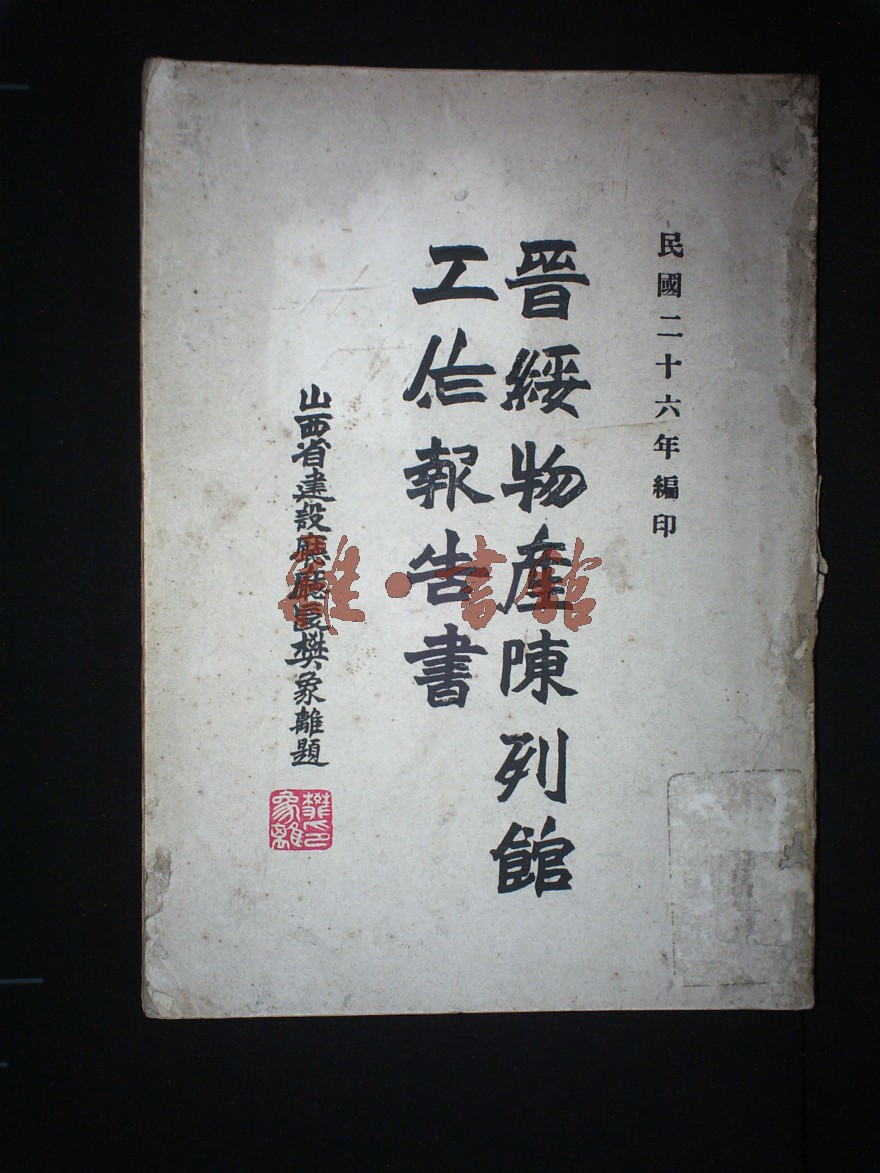 民國二十六年編印
晋綏物產陳列館
工作報告書
山西省建設廳廳長樊象離題
樊氏印
象離
雜·書館